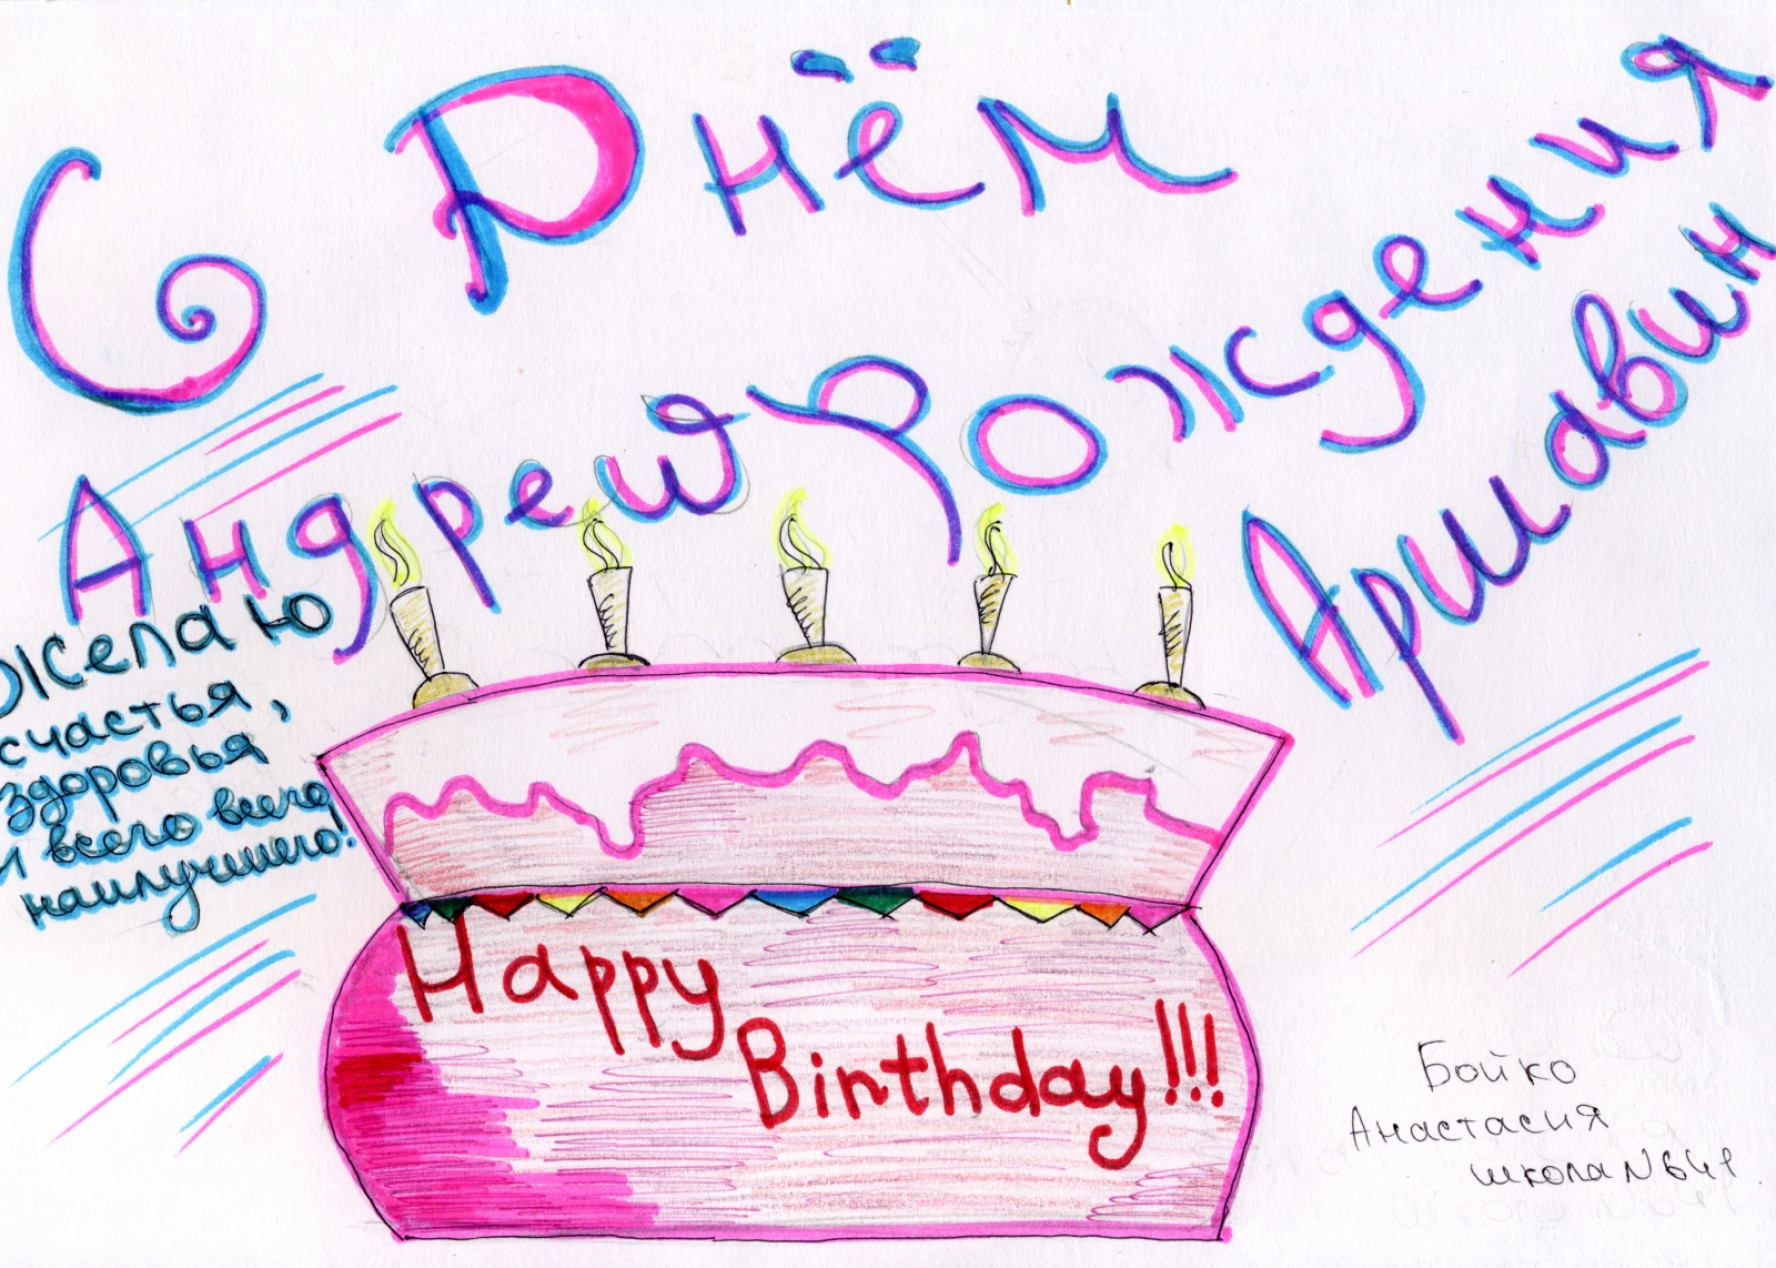 С Днём
Рождения
Андрей
Аршавин
Желаю
счастья,
здоровья
и всего всего
наилучшего!
Happy
Birthday!!!
Бойко
Анастасия
школа N641